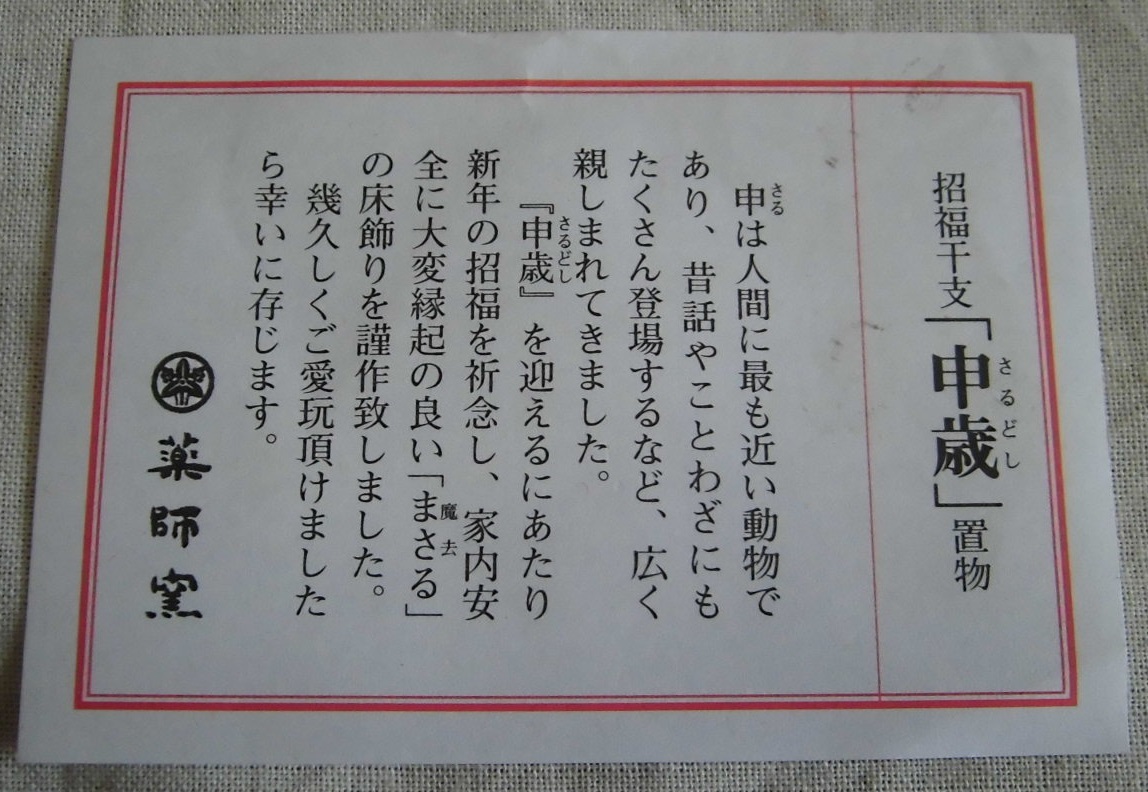 招福干支「申歳」置物
さるどし
申は人間に最も近い動物で
さる
あり、昔話やことわざにも
たくさん登場するなど、広く
親しまれてきました。
『申歳』を迎えるにあたり
さるどし
新年の招福を祈念し、家内安
全に大変縁起の良い「まさる」
魔去
の床飾りを謹作致しました。
幾久しくご愛玩頂けました
ら幸いに存じます。
薬師窯